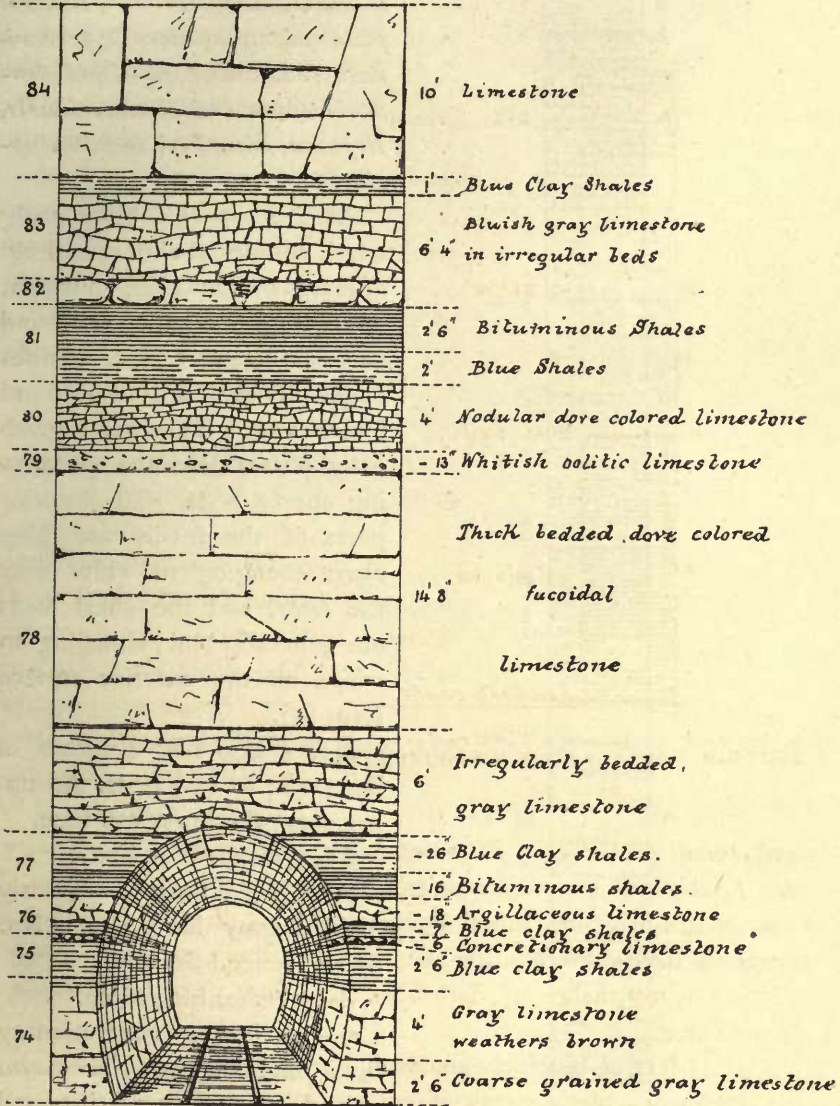 84 10' Limestone
1' Blue Clay Shales
83 Bluish gray limestone
6' 4" in irregular beds
82
81 2' 6" Bituminous Shales
2' Blue Shales
80 4' Nodular dove colored limestone
79 - 13" Whitish oolitic limestone
Thick bedded dove colored
14' 8" fucoidal
78
limestone
Irregularly bedded,
6'
gray limestone
77 - 26" Blue Clay shales.
- 16" Bituminous shales.
76 - 18" Argillaceous limestone
- 7" Blue clay shales
75 - 6" Concretionary limestone
2' 6" Blue clay shales
Gray limestone
74 4'
weathers brown
2' 6" Coarse grained gray limestone